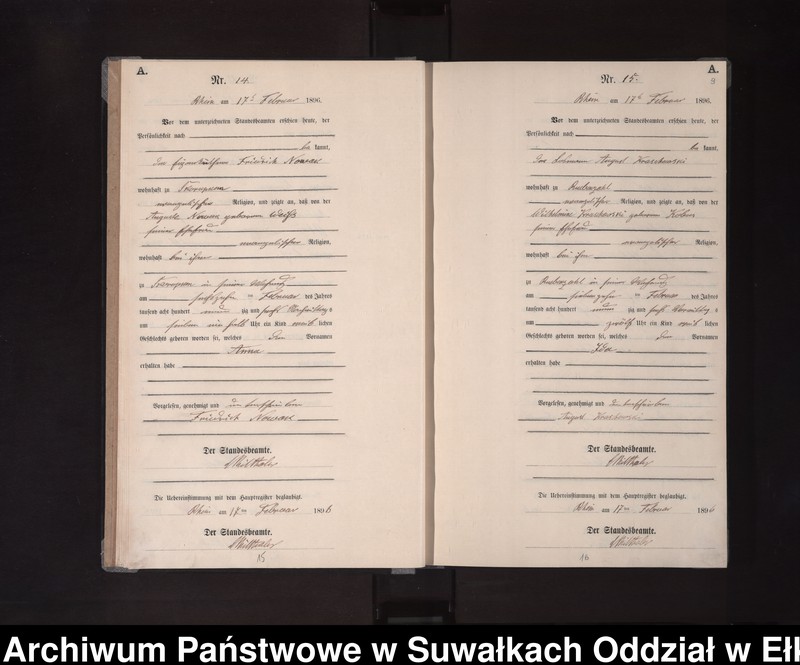 A.
Nr. 14.
Rhein am 17ten Februar 1896.
Vor dem unterzeichneten Standesbeamten erschien heute, der
Persönlichkeit nach
be kannt,
Friedrich Nowak
wohnhaft zu
evangelischer Religion, und zeigte an, daß von der
Auguste Nowak geborenen Weiß
seiner Ehefrau
evangelischer Religion,
wohnhaft bei ihm
zu in seiner Wohnung
am sechszehn ten Februar des Jahres
tausend acht hundert neun zig und sechs Nachmittag s
um sieben ein halb Uhr ein Kind weib lichen
Geschlechts geboren worden sei, welches den Vornamen
Anna
erhalten habe
Vorgelesen, genehmigt und unterschrieben
Friedrich Nowak
Der Standesbeamte.
Die Uebereinstimmung mit dem Hauptregister beglaubigt.
Rhein am 17ten Februar 1896
Der Standesbeamte.
15
A.
Nr. 15.
Rhein am 17ten Februar 1896.
Vor dem unterzeichneten Standesbeamten erschien heute, der
Persönlichkeit nach
be kannt,
August
wohnhaft zu Rudenzahl
evangelischer Religion, und zeigte an, daß von der
Wilhelmine geborenen
seiner Ehefrau
evangelischer Religion,
wohnhaft bei ihm
zu in seiner Wohnung
am siebenzehn ten Februar des Jahres
tausend acht hundert neun zig und sechs Vormittag s
um zwölf Uhr ein Kind weib lichen
Geschlechts geboren worden sei, welches den Vornamen
Ida
erhalten habe
Vorgelesen, genehmigt und unterschrieben
August
Der Standesbeamte.
Die Uebereinstimmung mit dem Hauptregister beglaubigt.
Rhein am 17ten Februar 1896
Der Standesbeamte.
16
Archiwum Państwowe w Suwałkach Oddział w Ełk